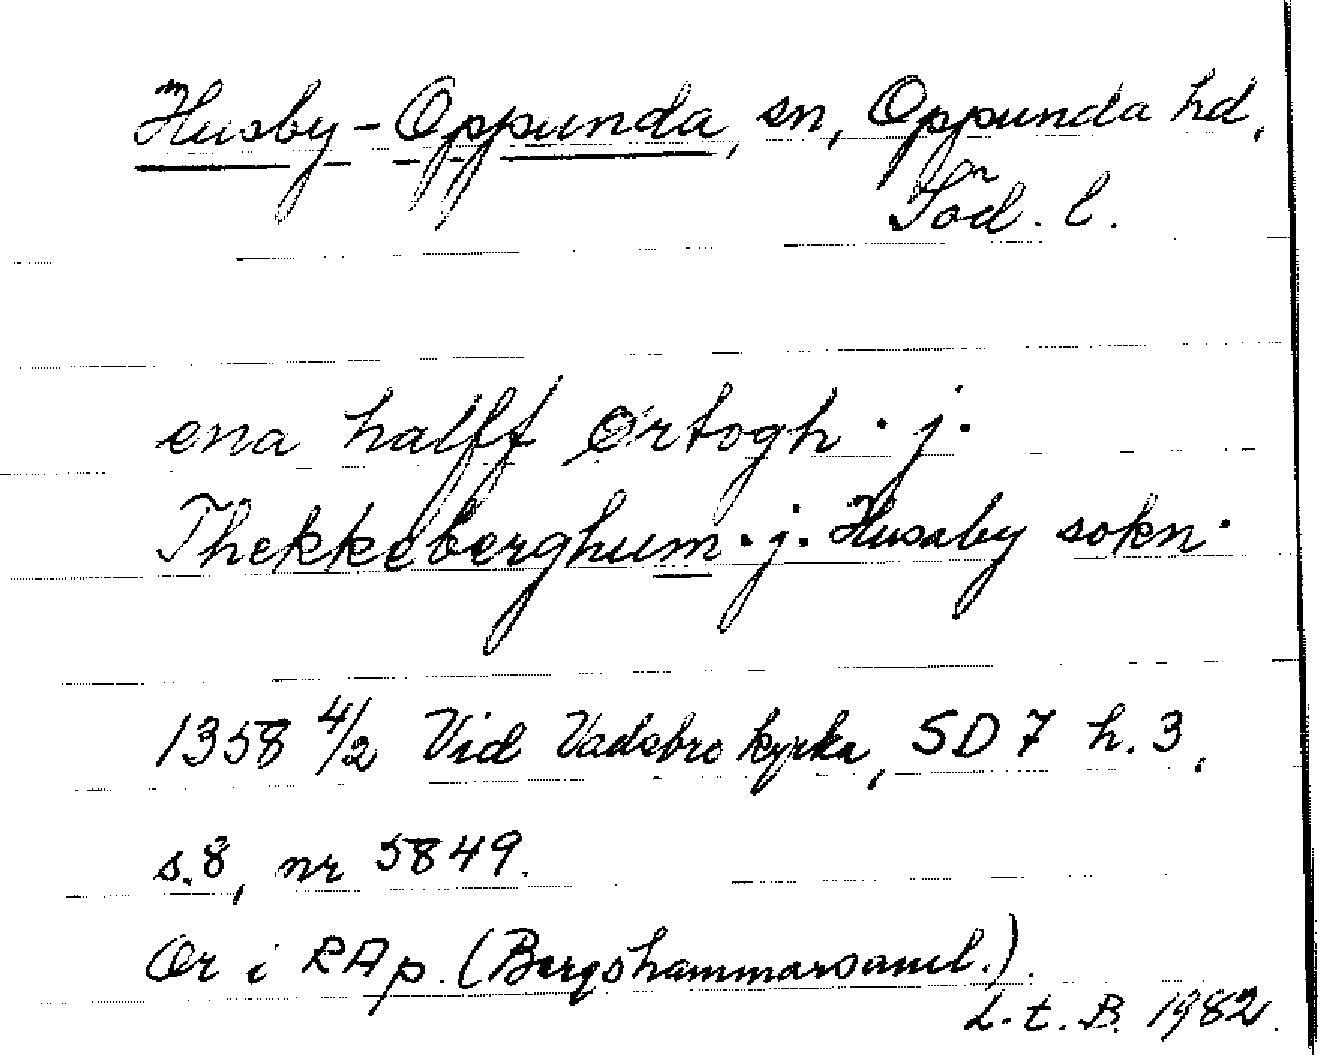 Husby-Oppunda, sn, Oppunda hd,
Söd. l.
ena halff ørtogh · j ·
Thekkeberghum · j · Husaby sokn ·
1358 4/2 Vid Vadsbro kyrka, SD 7 h. 3,
s. 8, nr 5849.
Or i RAp. (Bergshammarsaml.).
L. t. B. 1982.